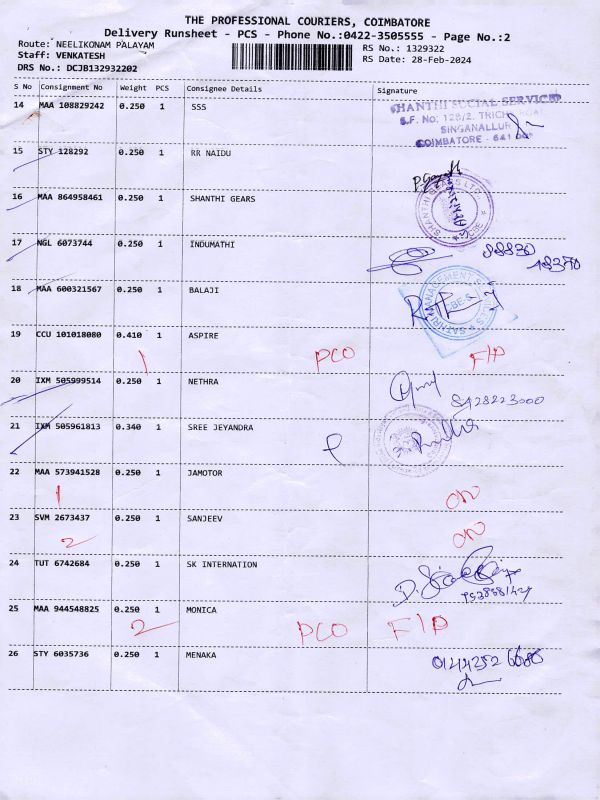 THE PROFESSIONAL COURIERS, COIMBATORE
Delivery Runsheet - PCS - Phone No.:0422-3505555 - Page No.:2
Route: NEELIKONAM PALAYAM
RS No.: 1329322
Staff: VENKATESH
RS Date: 28-Feb-2024
DRS No.: DCJB132932202
S No Consignment No Weight PCS Consignee Details Signature
14 MAA 108829242 0.250 1 SSS
SHANTHI SOCIAL SERVICES
S.F. No: 128/2, TRICHY ROAD
SINGANALLUR
COIMBATORE - 641
15 STY 128292 0.250 1 RR NAIDU
16 MAA 864958461 0.250 1 SHANTHI GEARS
SHANTHI GEARS LTD.
CBE
17 NGL 6073744 0.250 1 INDUMATHI
18 MAA 600321567 0.250 1 BALAJI
MANAGEMENT
19 CCU 101018080 0.410 1 ASPIRE
1 PCO F/P
20 IXM 505999514 0.250 1 NETHRA
21 IXM 505961813 0.340 1 SREE JEYANDRA
22 MAA 573941528 0.250 1 JAMOTOR
1
23 SVM 2673437 0.250 1 SANJEEV
2
24 TUT 6742684 0.250 1 SK INTERNATION
25 MAA 944548825 0.250 1 MONICA
2 PCO F/P
26 STY 6035736 0.250 1 MENAKA